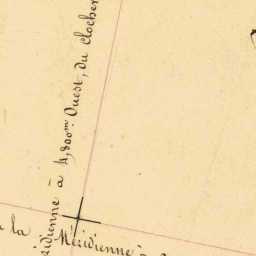 ridienne à 4,800m. Ouest, du Clocher
la Méridienne à